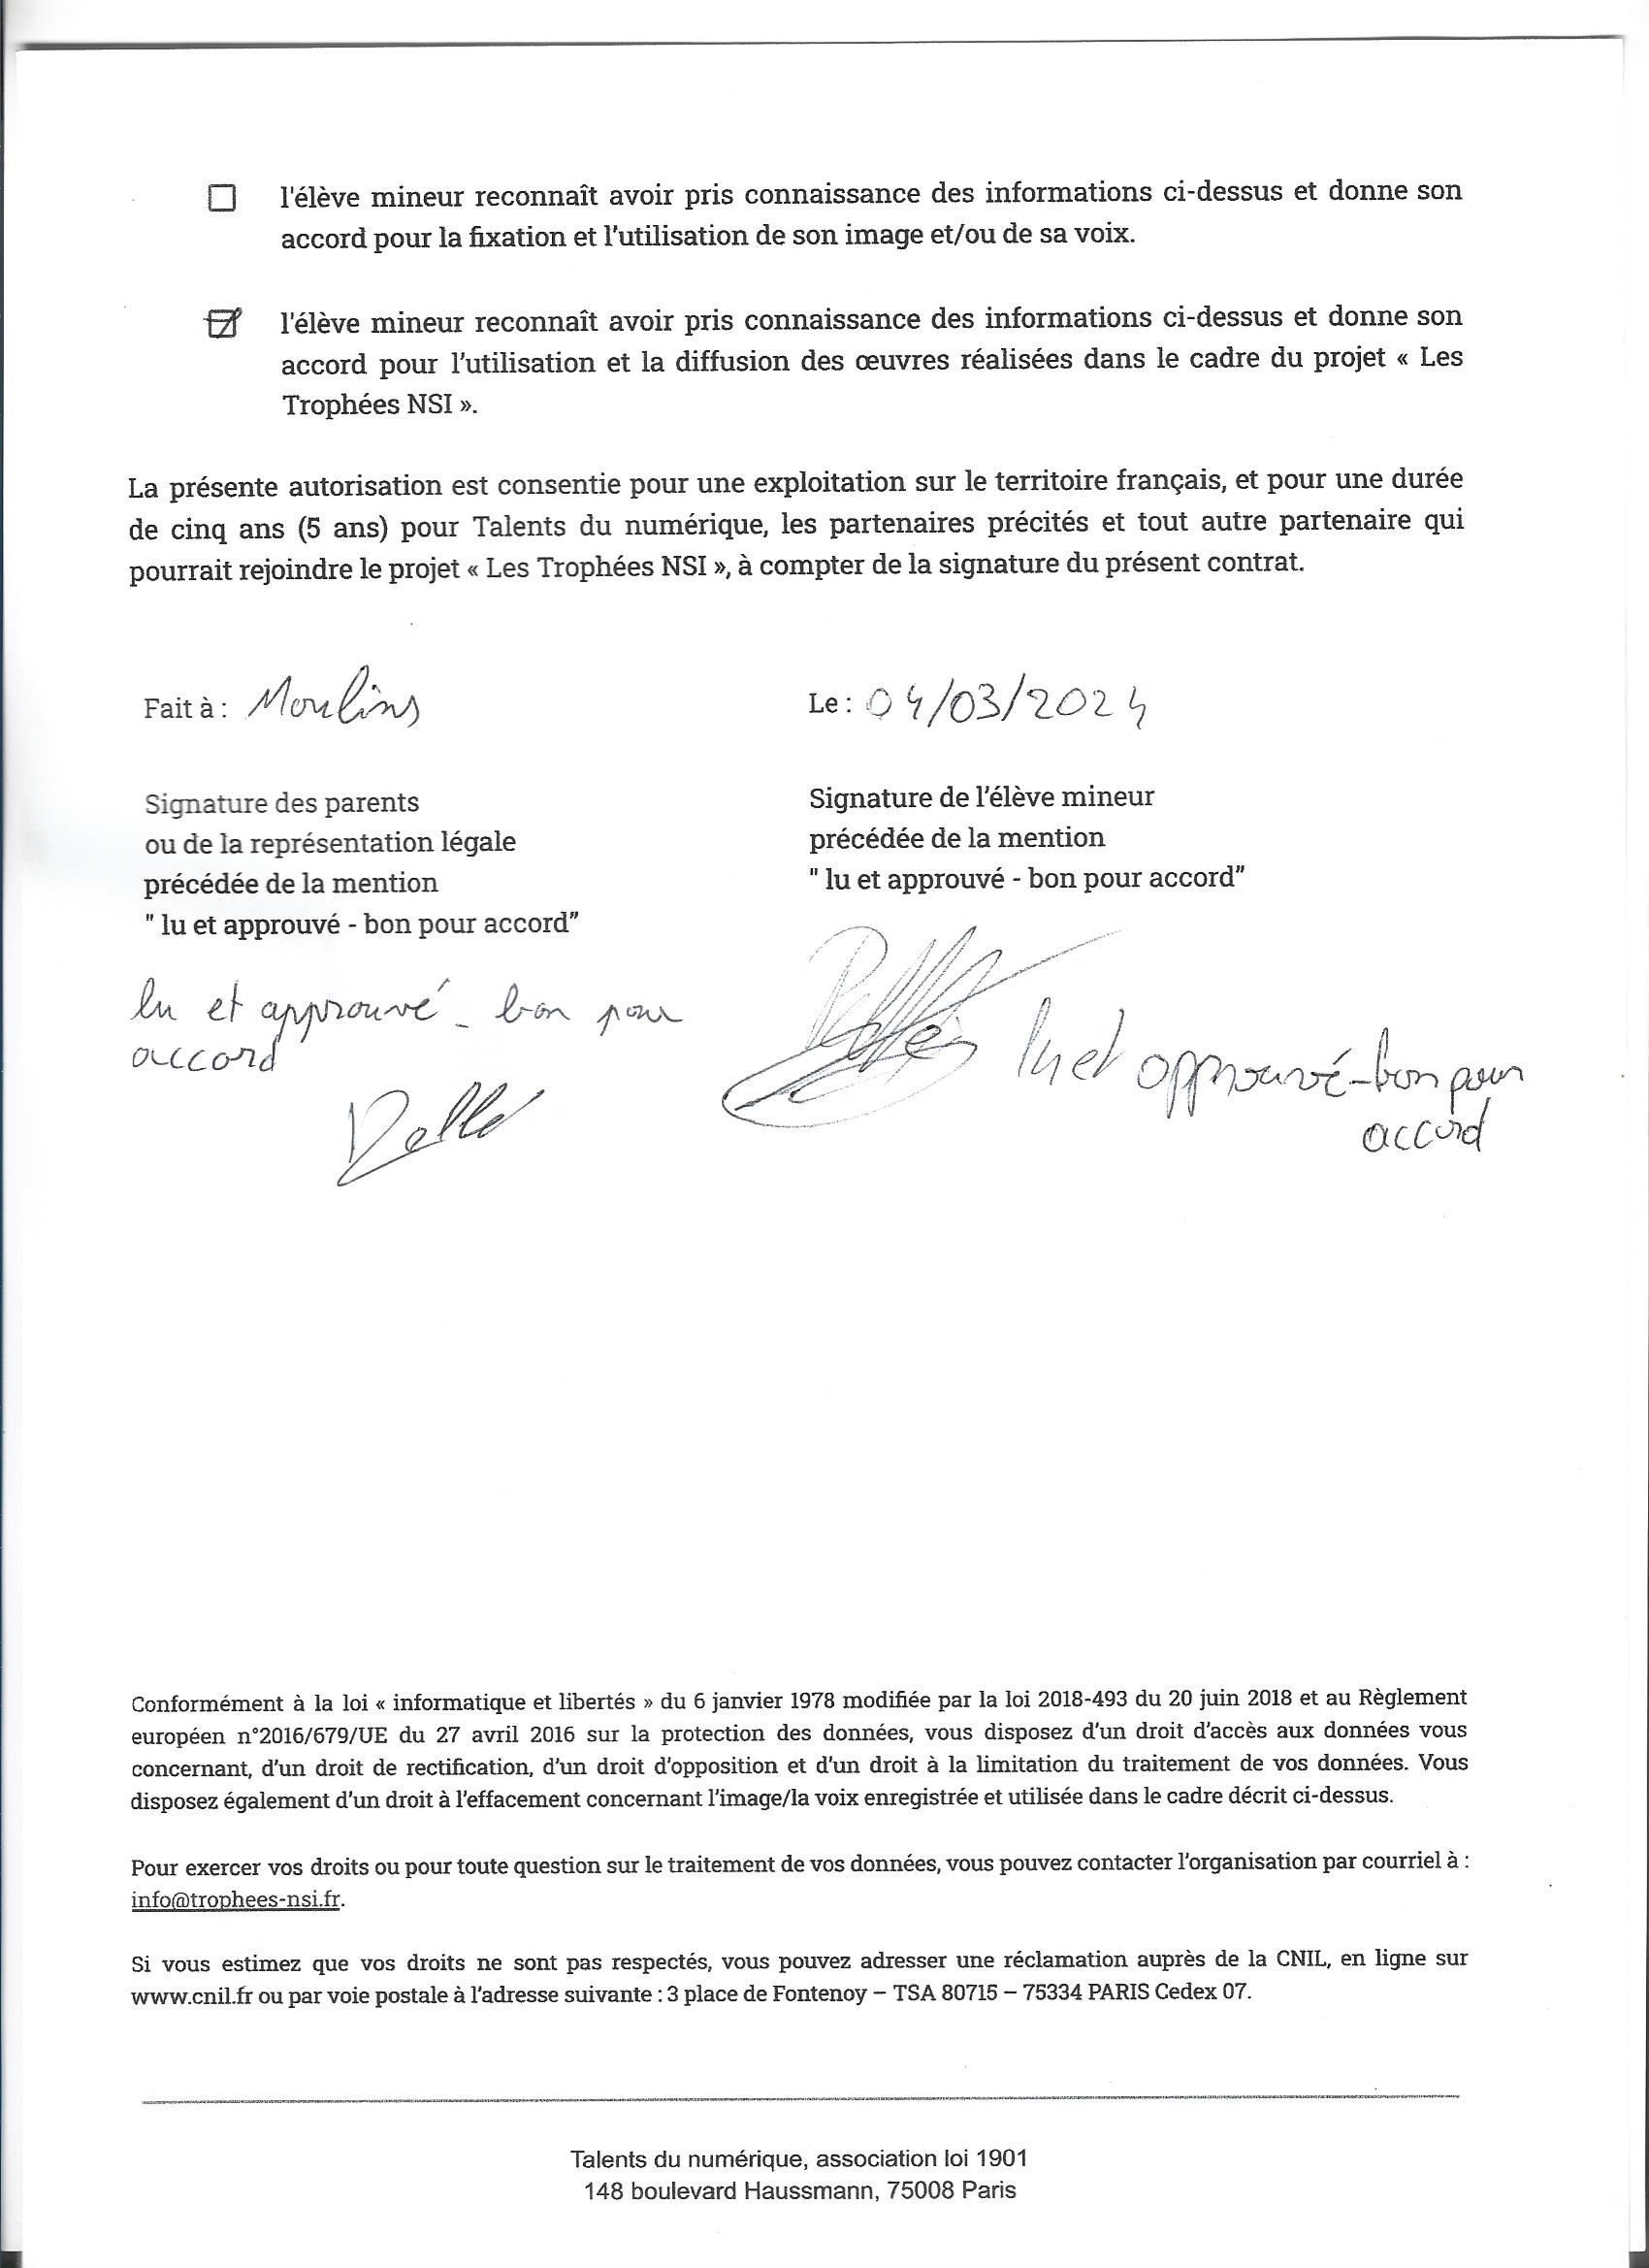 l'élève mineur reconnaît avoir pris connaissance des informations ci-dessus et donne son
accord pour la fixation et l'utilisation de son image et/ou de sa voix.
l'élève mineur reconnaît avoir pris connaissance des informations ci-dessus et donne son
accord pour l'utilisation et la diffusion des œuvres réalisées dans le cadre du projet « Les
Trophées NSI ».
La présente autorisation est consentie pour une exploitation sur le territoire français, et pour une durée
de cinq ans (5 ans) pour Talents du numérique, les partenaires précités et tout autre partenaire qui
pourrait rejoindre le projet « Les Trophées NSI », à compter de la signature du présent contrat.
Fait à : Moulins
Le : 04/03/2024
Signature des parents
ou de la représentation légale
précédée de la mention
" lu et approuvé - bon pour accord"
lu et approuvé - bon pour
accord
Signature de l'élève mineur
précédée de la mention
" lu et approuvé - bon pour accord"
lu et approuvé - bon pour
accord
Conformément à la loi « informatique et libertés » du 6 janvier 1978 modifiée par la loi 2018-493 du 20 juin 2018 et au Règlement
européen n°2016/679/UE du 27 avril 2016 sur la protection des données, vous disposez d'un droit d'accès aux données vous
concernant, d'un droit de rectification, d'un droit d'opposition et d'un droit à la limitation du traitement de vos données. Vous
disposez également d'un droit à l'effacement concernant l'image/la voix enregistrée et utilisée dans le cadre décrit ci-dessus.
Pour exercer vos droits ou pour toute question sur le traitement de vos données, vous pouvez contacter l'organisation par courriel à :
info@trophees-nsi.fr.
Si vous estimez que vos droits ne sont pas respectés, vous pouvez adresser une réclamation auprès de la CNIL, en ligne sur
www.cnil.fr ou par voie postale à l'adresse suivante : 3 place de Fontenoy – TSA 80715 – 75334 PARIS Cedex 07.
Talents du numérique, association loi 1901
148 boulevard Haussmann, 75008 Paris